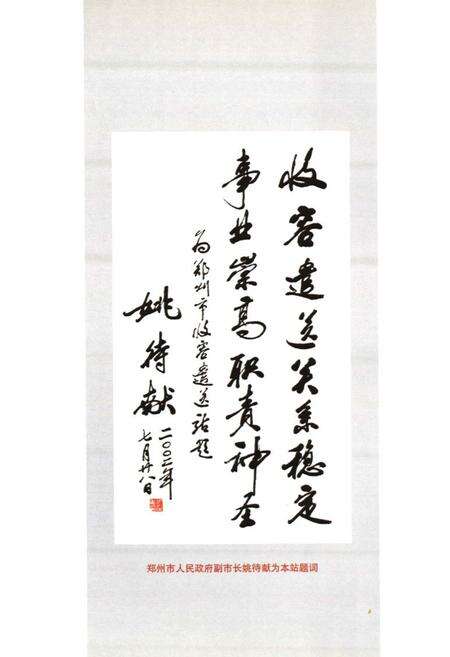 收容遣送关系稳定
事业崇高职责神圣
为郑州市收容遣送站题
姚待献
二〇〇二年
七月廿八日
郑州市人民政府副市长姚待献为本站题词